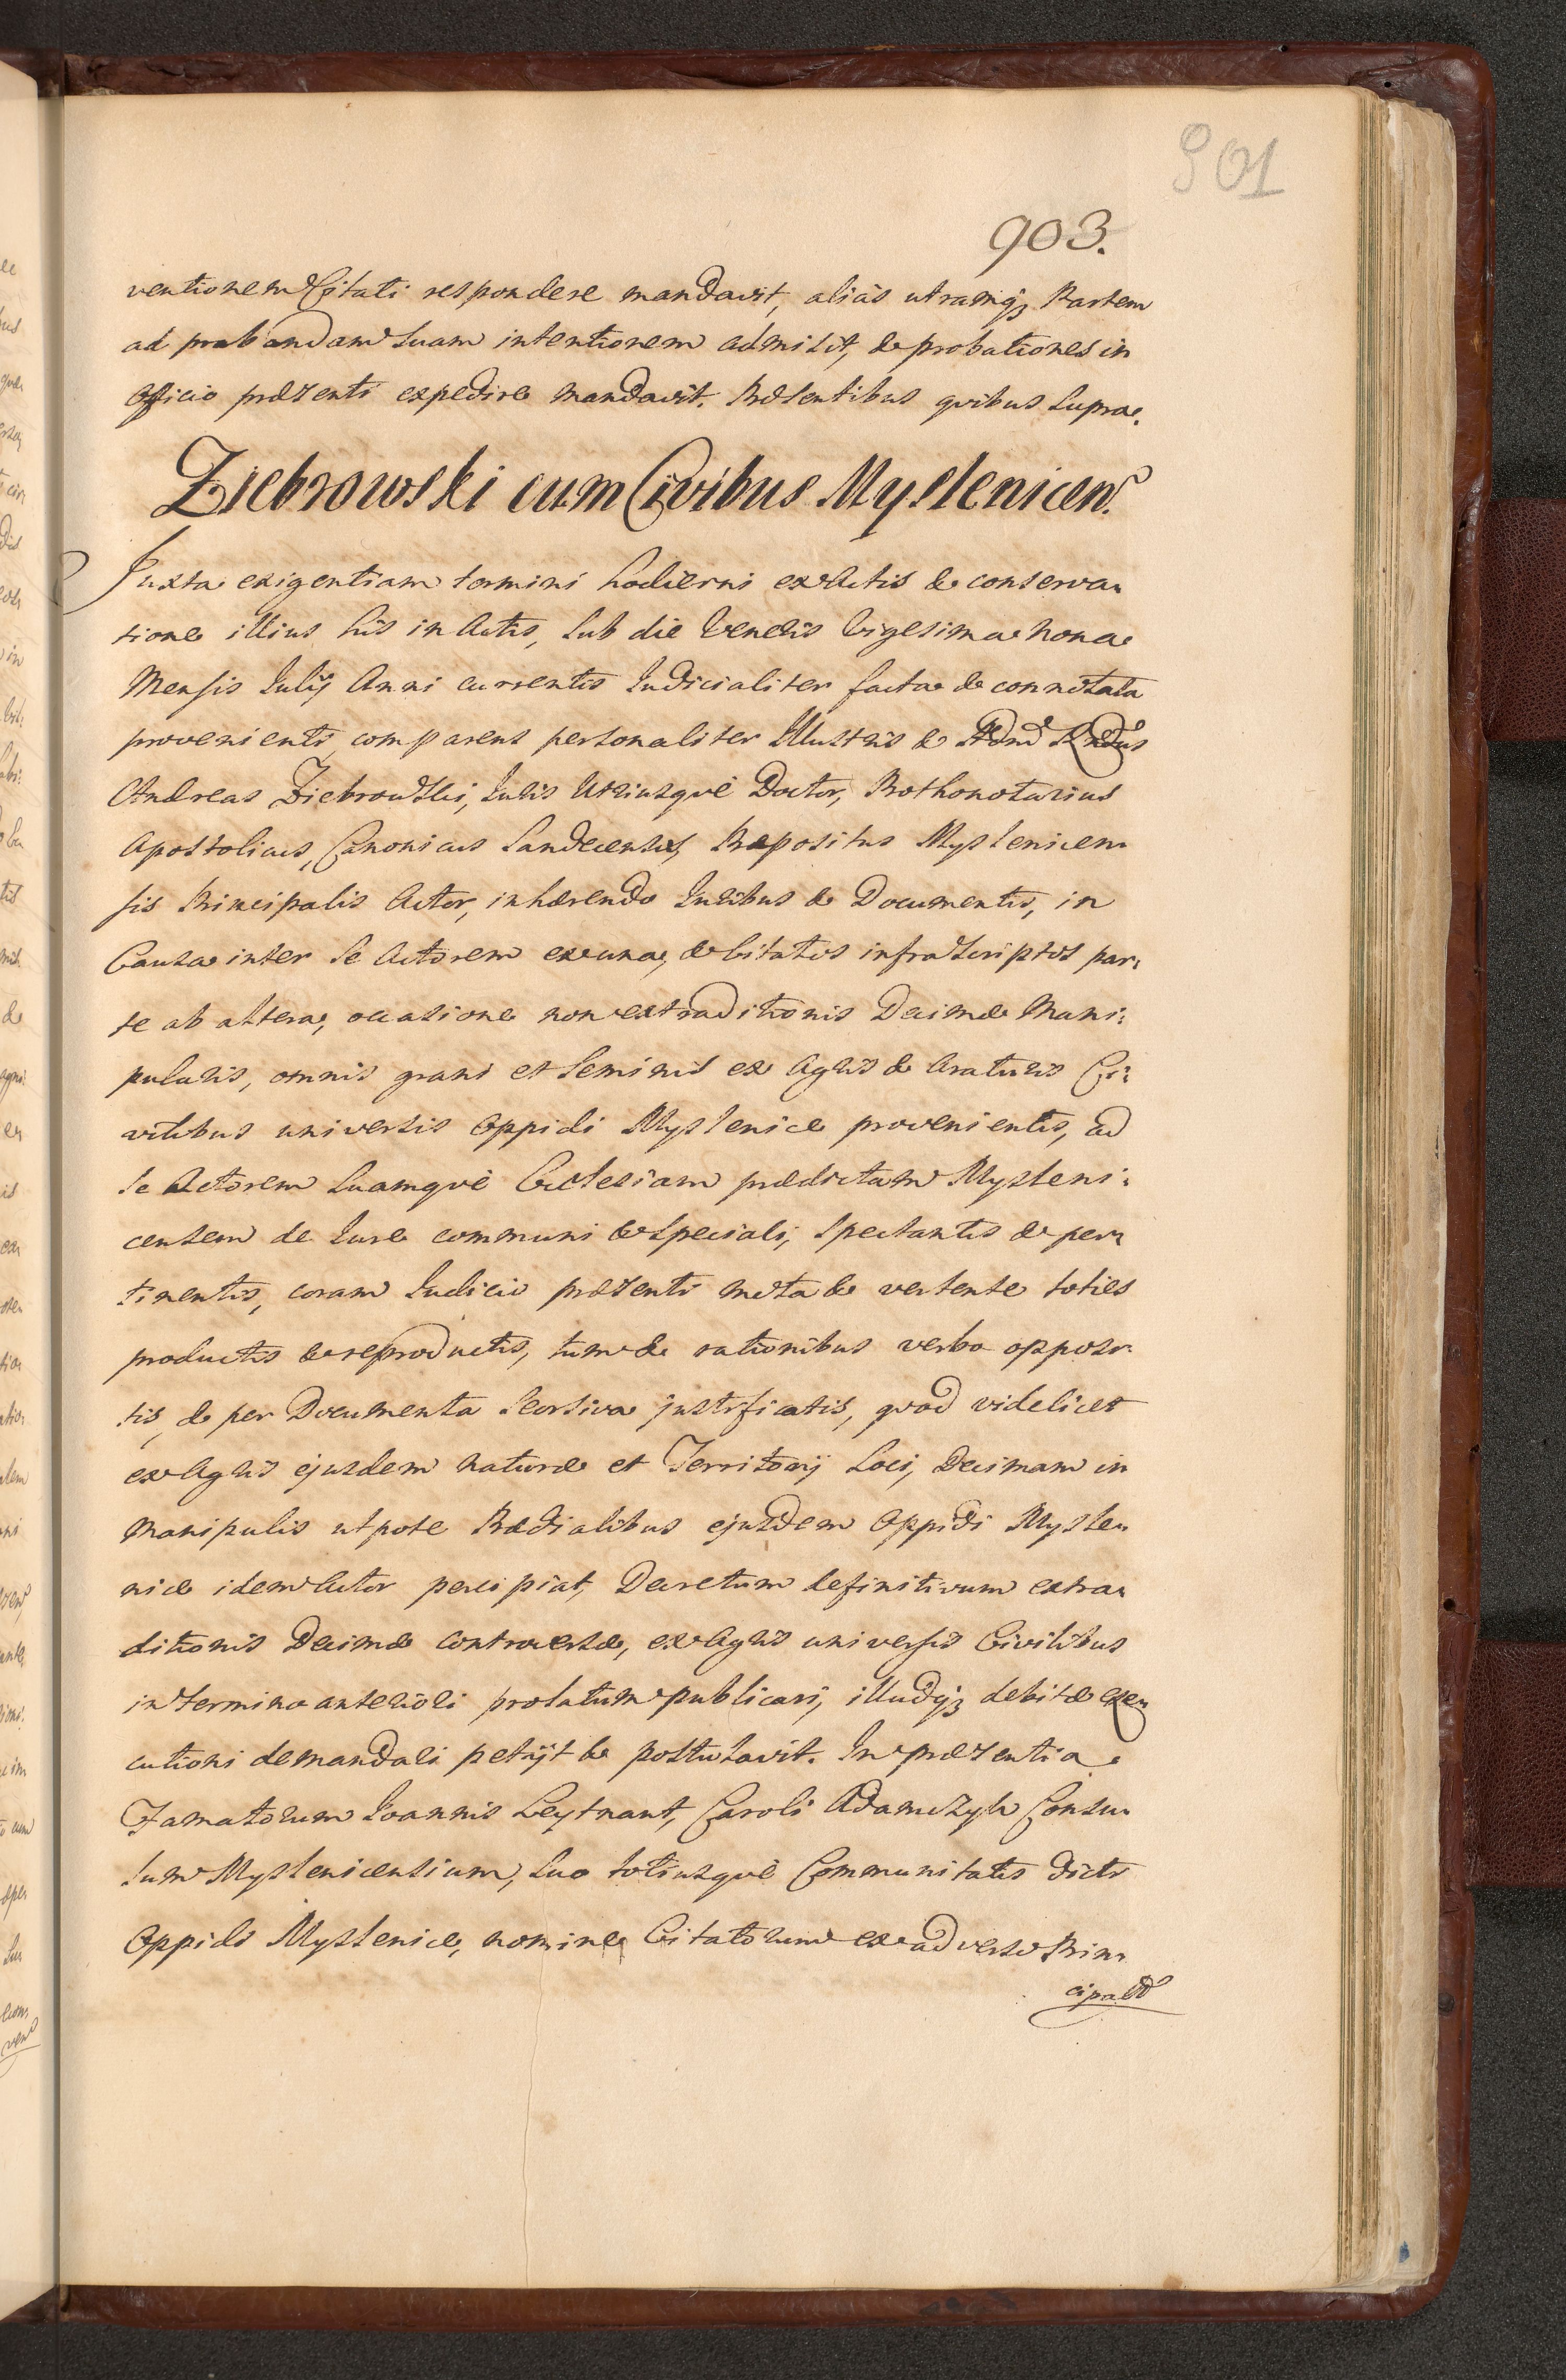 901
903.
ventionem Citati respondere mandavit, aliàs utramq3 Partem
ad probandam suam intentionem admisit, & probationes in
Officio præsenti expedire mandavit. Præsentibus quibus supra.
Ziebrowski cum Civibus Myslenicen.
Juxta exigentiam termini hodierni ex Actis & conserva-
tione illius his in Actis, sub die Veneris Vigesima nona
Mensis Julij Anni currentis Judicialiter facta & connotata
provenienti, comparens personaliter Illustris & Admd Rndus
Andreas Ziebrowski, Juris Utriusquè Doctor, Prothonotarius
Apostolicus, Canonicus Sandecensis, Præpositus Myslenicen-
sis Principalis Actor, inhærendo Juribus & Documentis, in
Causa inter se Actorem ex una, & Citatos infrascriptos par:
te ab altera, occasione non extraditionis Decimæ Mani:
pularis, omnis grani et seminis ex Agris & Araturis Ci:
vilibus universis Oppidi Myslenice provenientis, ad
se Actorem suamquè Ecclesiam prædictam Mysleni:
censem de Jure communi & speciali, spectantis & per-
tinentis, coram Judicio præsenti mota & vertente toties
productis & reproductis, tum & rationibus verbo opposi-
tis, & per Documenta seorsiva justificatis, quod videlicet
ex Agris ejusdem naturæ et Territorij Loci, Decimam in
Manipulis utpote Prædialibus ejusdem Oppidi Mysle-
nice idem Actor percipiat, Decretum definitivum extra-
ditionis Decimæ controversæ, ex Agris universis Civilibus
in termino anteriori prolatum publicari, illudq3 debitæ exe-
cutioni demandari petijt & postulavit. In præsentia
Famatorum Joannis Leytnant, Caroli Adamczyk Consu-
lum Myslenicensium, suo totiusquè Communitatis dicti
Oppidi Myslenice, nomine Citatorum ex adverso Prin-
cipald